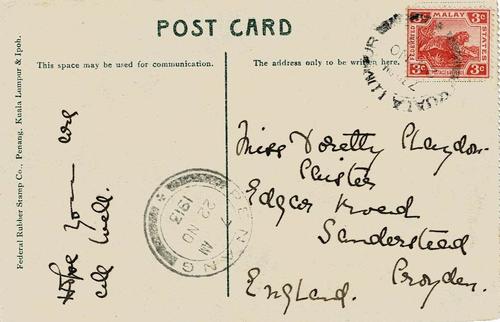 POST CARD
This space may be used for communication.
The address only to be written here.
Federal Rubber Stamp Co., Penang, Kuala Lumpur & Ipoh.
Hope you are
all well.
Miss Doretty
Edgar Road
Sanderstead
Croydon.
England.
3c MALAY 3c
FEDERATED
STATES
3c 3c
KUALA LUMPUR
PENANG
22 NO
1913